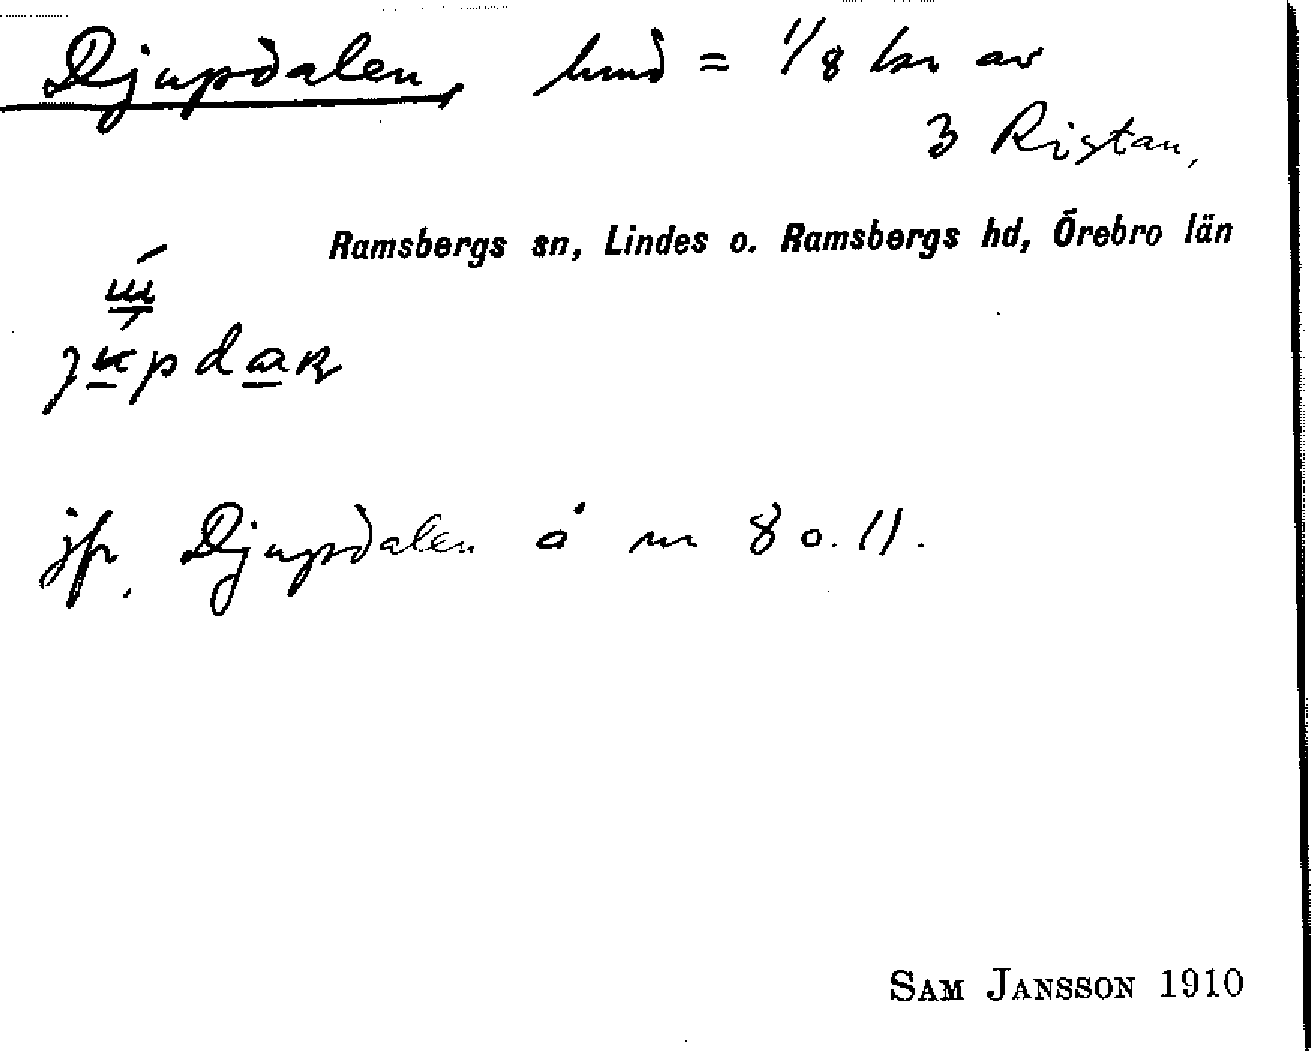 Djupdalen, hmd = 1/8 hn av
3 Ristan,
Ramsbergs sn, Lindes o. Ramsbergs hd, Örebro län
jfr. Djupdalen å nr 8 o. 11.
SAM JANSSON 1910